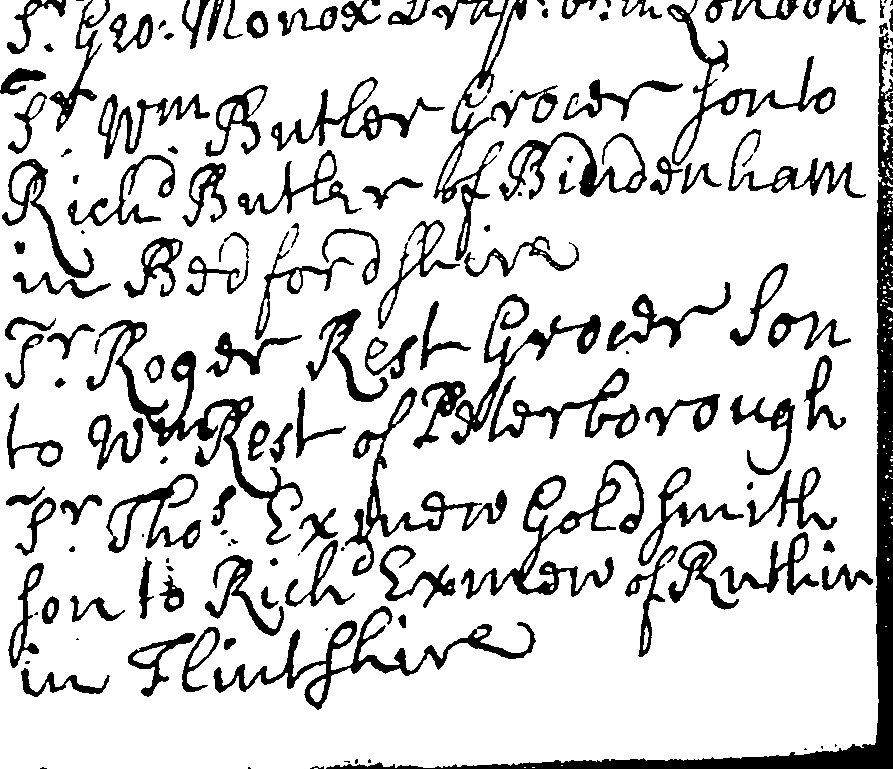 Sr. Geo: Monox Drapr. born in London
Sr. Wm. Butler Grocer son to
Richd Butler of Biddenham
in Bedfordshire
Sr. Roger Rest Grocer Son
to Wm. Rest of Peterborough
Sr. Thos. Exmew Goldsmith
son to Richd Exmew of Ruthin
in Flintshire